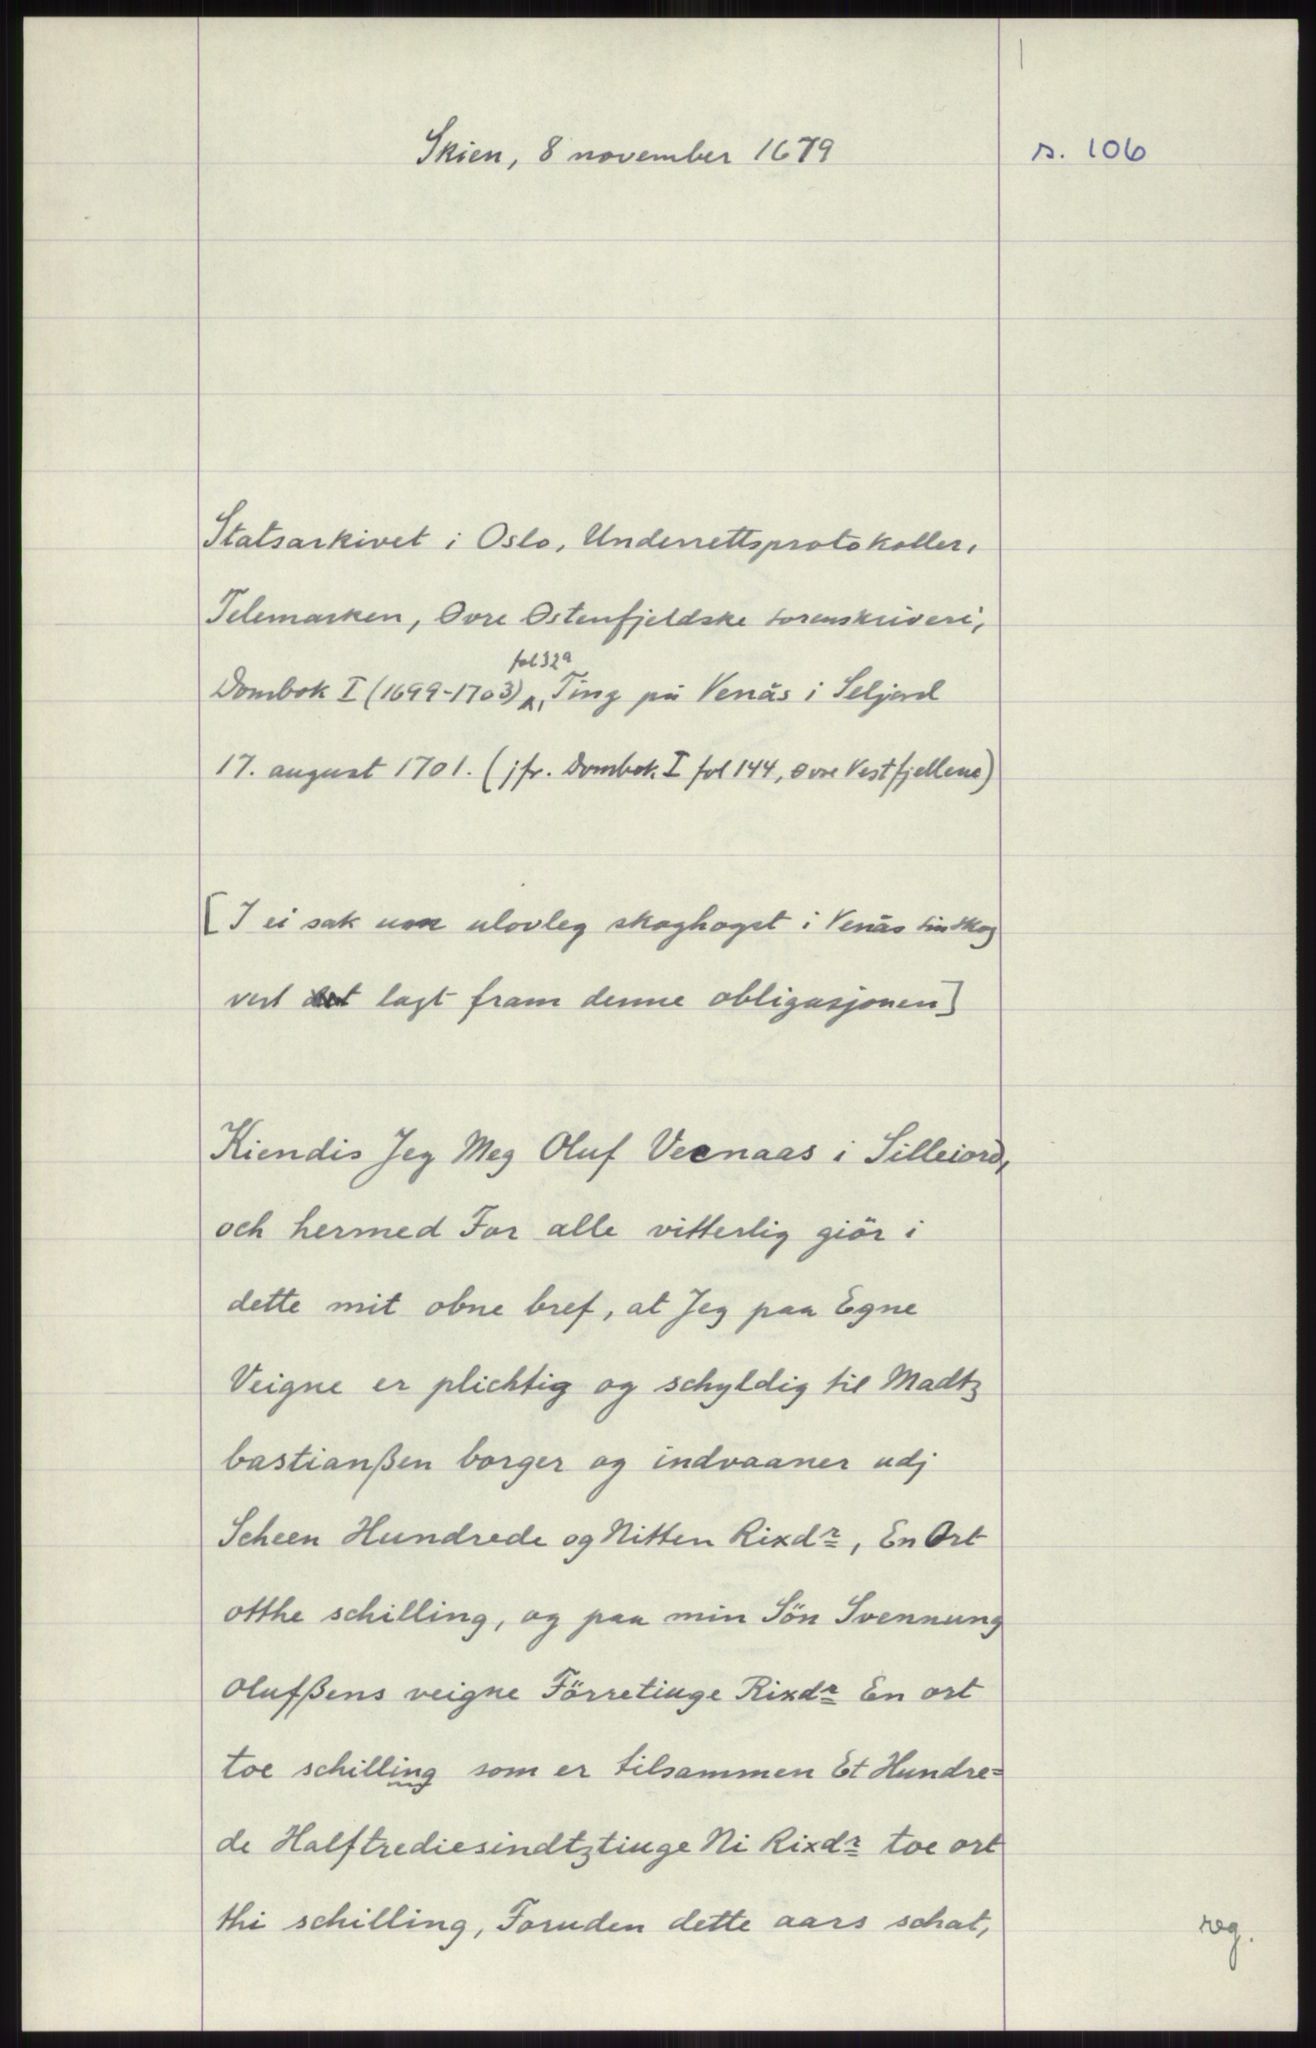 Skien, 8 november 1679
s. 106
Statsarkivet i Oslo, Underrettsprotokoller,
Telemarken, Øvre Østenfjeldske sorenskriveri,
fol 32a
Dombok I (1699-1703), Ting på Venås i Seljord
17. august 1701. (jfr. Dombok I fol 144, Øvre Vestfjellene)
[I ei sak um ulovleg skoghogst i Venås sin skog
vert lagt fram denne obligasjonen]
Kiendis Jeg Meg Oluf Veenaas i Silleiord,
och hermed For alle vitterlig giör i
dette mit obne bref, at Jeg paa Egne
Veigne er plichtig og schyldig til Madtz
bastianßen borger og indvaaner udj
Scheen Hundrede og Nitten Rixdr, En Ort
otthe schilling, og paa min Sön Svennung
Olufßens veigne Förretiuge Rixdr En ort
toe schilling som er tilsammen Et Hundre=
de Halftrediesindtztiuge Ni Rixdr toe ort
thi schilling, Foruden dette aars schat,
reg.